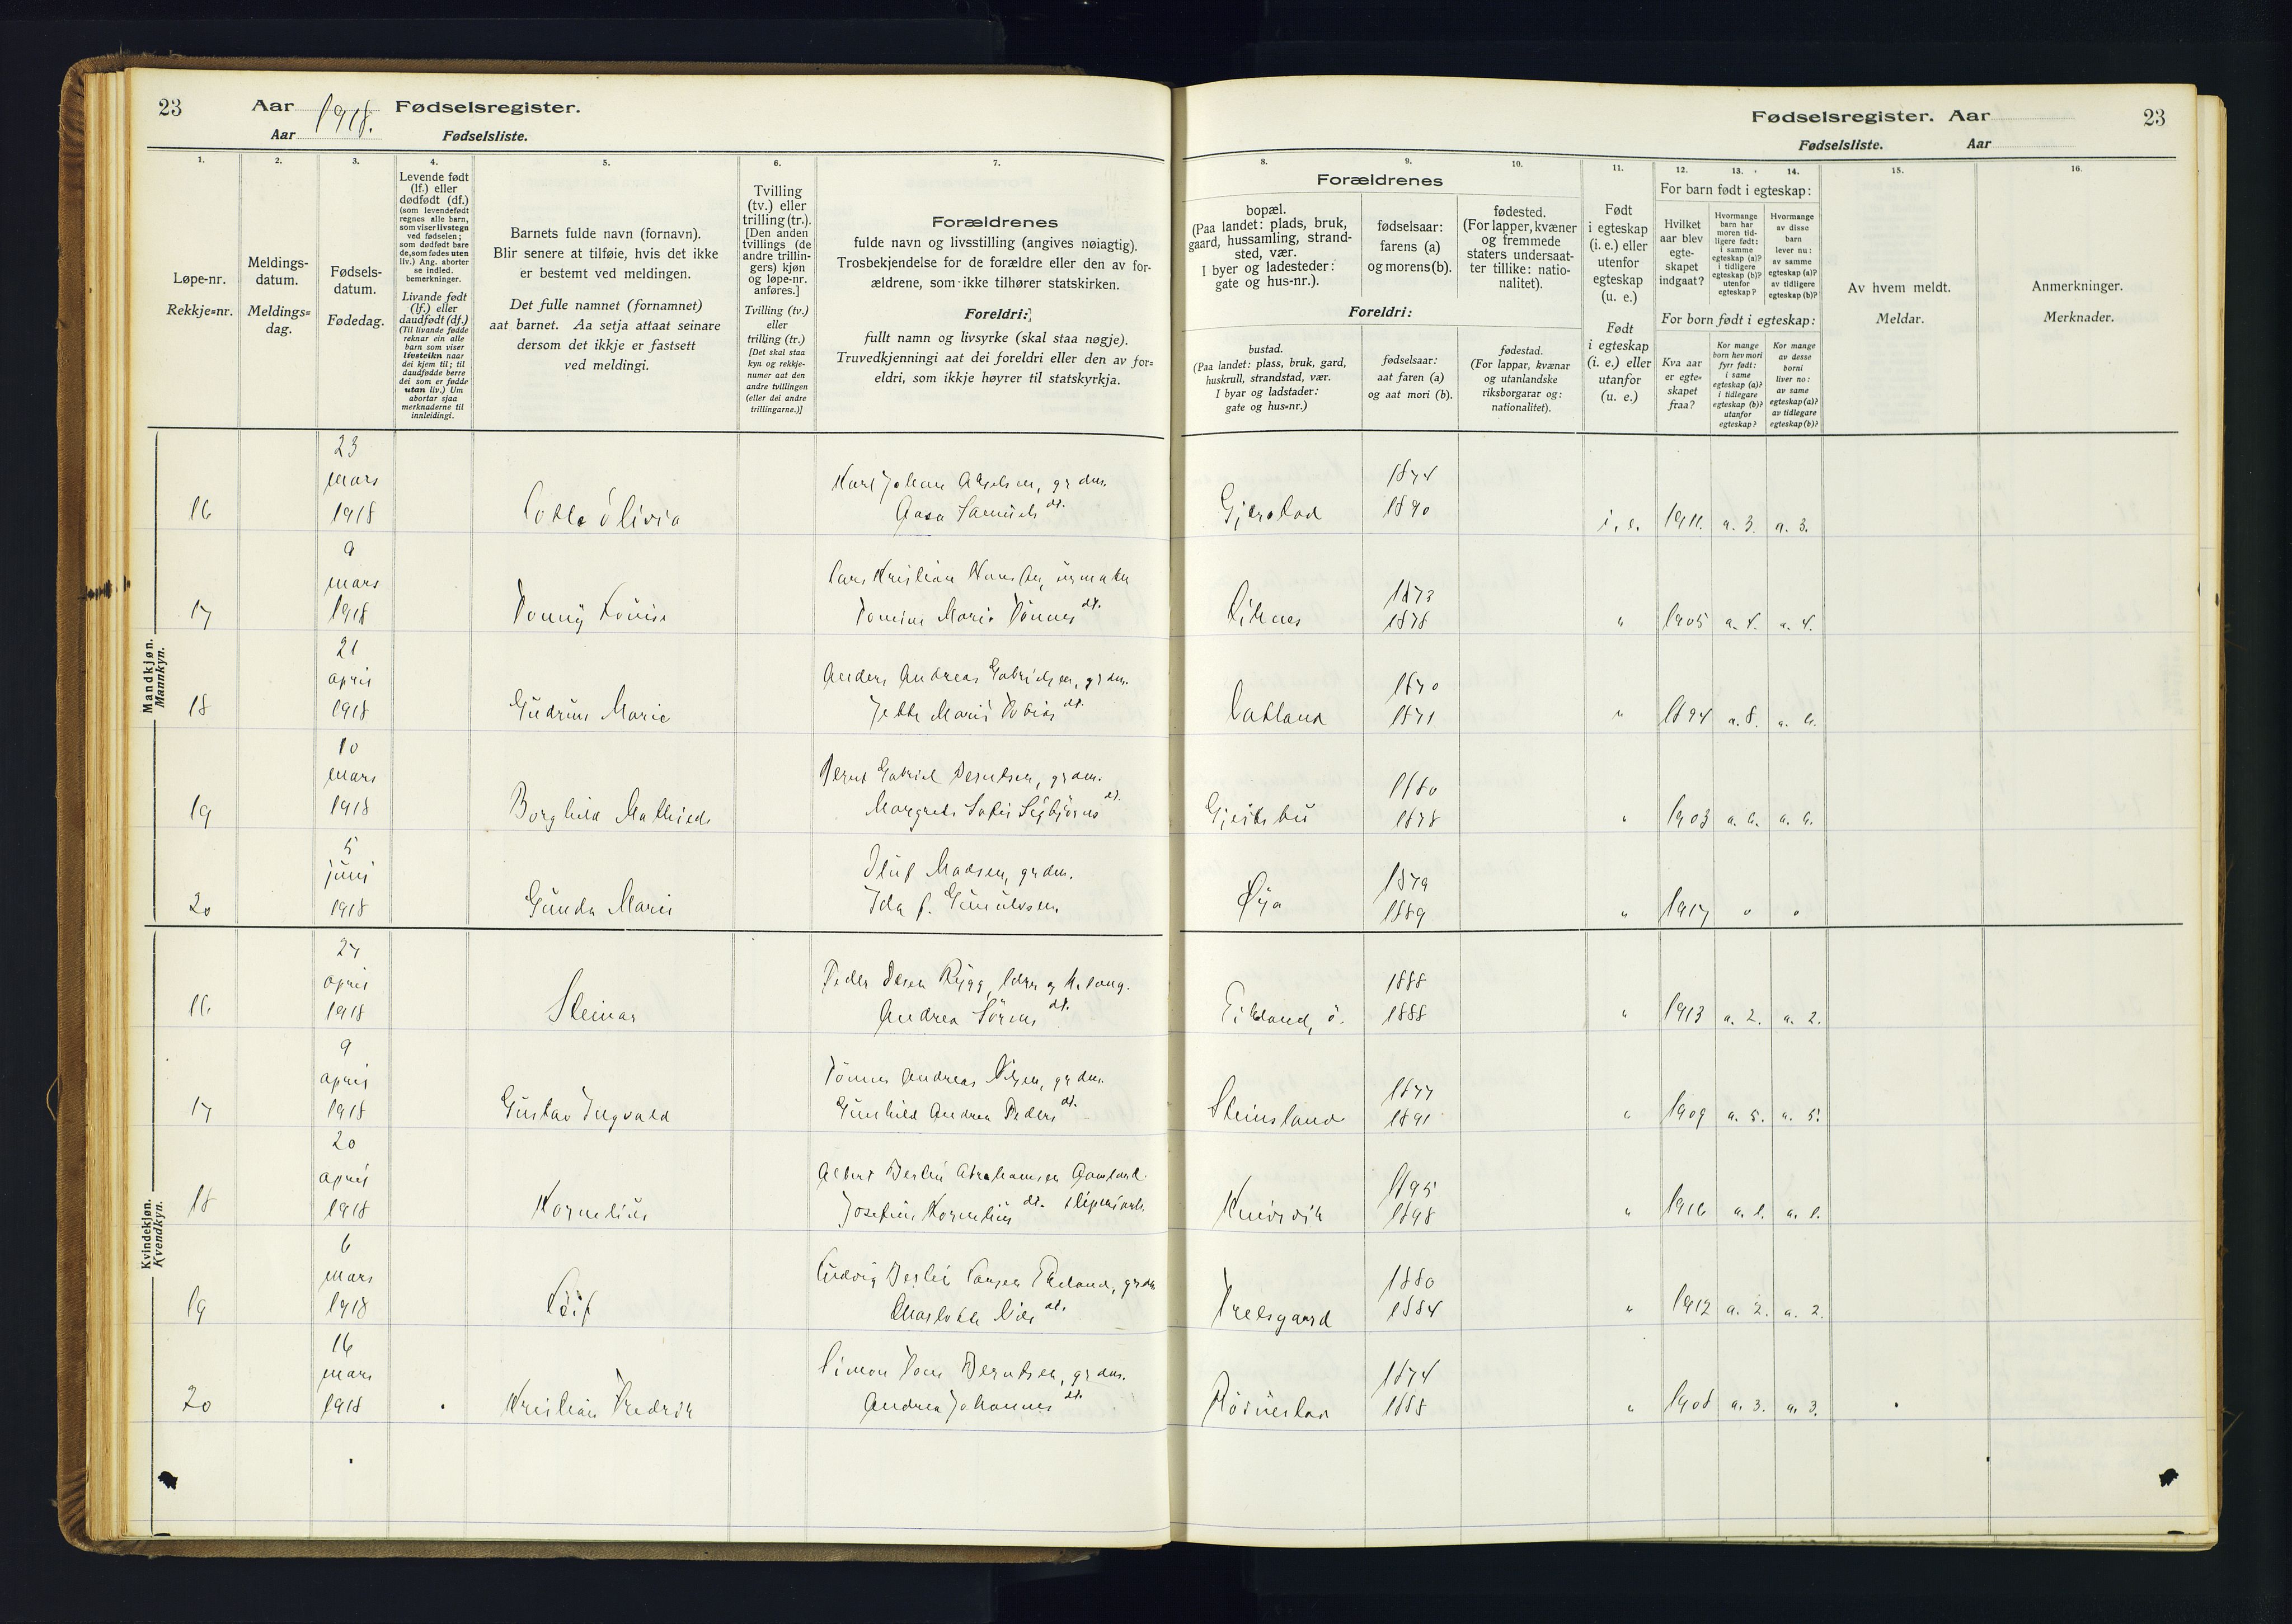 23 Aar 1918. Fødselsregister.
Aar Fødselsliste.
Fødselsregister. Aar 23
Fødselsliste. Aar
1. 2. 3. 4. 5. 6. 7.
Løpe-nr.
Rekkje=nr.
Meldings-
datum.
Meldings=
dag.
Fødsels-
datum.
Fødedag.
Levende født
(lf.) eller
dødfødt (df.)
(som levendefødt
regnes alle barn,
som viser livstegn
ved fødselen;
som dødfødt bare
de, som fødes uten
liv.) Ang. aborter
se indled.
bemerkninger.
Livande født
(lf.) eller
daudfødt (df.)
(Til livande fødde
reknar ein alle
barn som viser
livsteikn naar
dei kjem til; til
daudfødde berre
dei som er fødde
utan liv.) Um
abortar sjaa
merknaderne til
innleidingi.
Barnets fulde navn (fornavn).
Blir senere at tilføie, hvis det ikke
er bestemt ved meldingen.
Det fulle namnet (fornamnet)
aat barnet. Aa setja attaat seinare
dersom det ikkje er fastsett
ved meldingi.
Tvilling
(tv.) eller
trilling (tr.).
[Den anden
tvillings (de
andre trillin-
gers) kjøn
og løpe-nr.
anføres.]
Tvilling (tv.)
eller
trilling (tr.)
[Det skal staa
kyn og rekkje-
numer aat den
andre tvillingen
(eller dei andre
trillingarne.)]
Forældrenes
fulde navn og livsstilling (angives nøiagtig).
Trosbekjendelse for de forældre eller den av for-
ældrene, som ikke tilhører statskirken.
Foreldri:
fullt namn og livsyrke (skal staa nøgje).
Truvedkjenningi aat dei foreldri eller den av for=
eldri, som ikkje høyrer til statskyrkja.
8. 9. 10. 11. 12. 13. 14. 15. 16.
Forældrenes
bopæl.
(Paa landet: plads, bruk,
gaard, hussamling, strand-
sted, vær.
I byer og ladesteder:
gate og hus-nr.).
fødselsaar:
farens (a)
og morens (b).
fødested.
(For lapper, kvæner
og fremmede
staters undersaat-
ter tillike: natio-
nalitet).
Foreldri:
bustad.
(Paa landet: plass, bruk, gard,
huskrull, strandstad, vær.
I byar og ladstader:
gate og hus=nr.)
fødselsaar:
aat faren (a)
og aat mori (b).
fødestad.
(For lappar, kvænar
og utanlandske
riksborgarar og:
nationalitet).
Født
i egteskap
(i. e.) eller
utenfor
egteskap
(u. e.)
Født
i egteskap
(i. e.) eller
utanfor
(u. e.)
For barn født i egteskap:
Hvilket
aar blev
egte-
skapet
indgaat?
Hvormange
barn har
moren tid-
ligere født:
i samme
egteskap (a)?
i tidligere
egteskap (b)?
utenfor
egteskap?
Hvormange
av disse
barn
lever nu:
av samme
egteskap (a)?
av tidligere
egteskap (b)?
For born født i egteskap:
Kva aar
er egte=
skapet
fraa?
Kor mange
born hev mori
fyrr født:
i same
egteskap (a)?
i tidlegare
egteskap (b)?
utanfor
egteskap?
Kor mange
av desse
borni
liver no:
av same
egteskap (a)?
av tidlegare
egteskap (b)?
Av hvem meldt.
Meldar.
Anmerkninger.
Merknader.
Mandkjøn.
Mannkyn.
23
mars
16 1918 Lotte Olivia
Karl Johan Akselsen, grdm.
Aasa Samuels dt.
Gjerstad 1874 1890 i. e. 1911. a. 3. a. 3.
9
mars
17 1918 Tonny Lovise
Lars Kristian
Tomine Marie Tønnes dt.
1873 1878 " 1905 a. 4. a. 4.
21
april
18 1918 Gudrun Marie
Anders Andreas Gabrielsen, grdm.
Jette Marie Tobias dt.
1870 1871 " 1894 a. 8. a. 6.
10
mars
19 1918 Borghild Mathilde
Bernt Gabriel Berntsen, grdm.
Margrete Sofie Sigbjørns dt.
1880 1878 " 1903 a. 6. a. 6.
5
juni
20 1918 Gunda Marie
Oluf Madsen, grdm.
Ida f. Gunulvsen
Øya 1879 1889 " 1917 0 0
Kvindekjøn.
Kvendkyn.
27
april
16 1918 Steinar
Peder Rygg, lærer og
Andrea Sørens dt.
Eikeland, ø. 1888 1888 " 1913 a. 2. a. 2.
9
april
17 1918 Gustav Ingvald
Tønnes Andreas Nilsen, grdm.
Gunhild Andrea Peders dt.
Steinsland 1877 1891 " 1909 a. 5. a. 5.
20
april
18 1918 Kornelius
Albert Berlin Abrahamsen
Josefine Kornelius dt. sliperiarb.
1895 1898 " 1916 a. 1. a. 1.
6
mars
19 1918 Leif
Ludvig Larsen Ekeland, grdm
Charlotte Nils dt.
Trelsgaard 1880 1884 " 1912 a. 2. a. 2.
16
mars
20 1918 Kristian Fredrik
Simon Tom Berntsen, grdm.
Andrea Johannes dt.
1874 1888 " 1908 a. 3. a. 3.